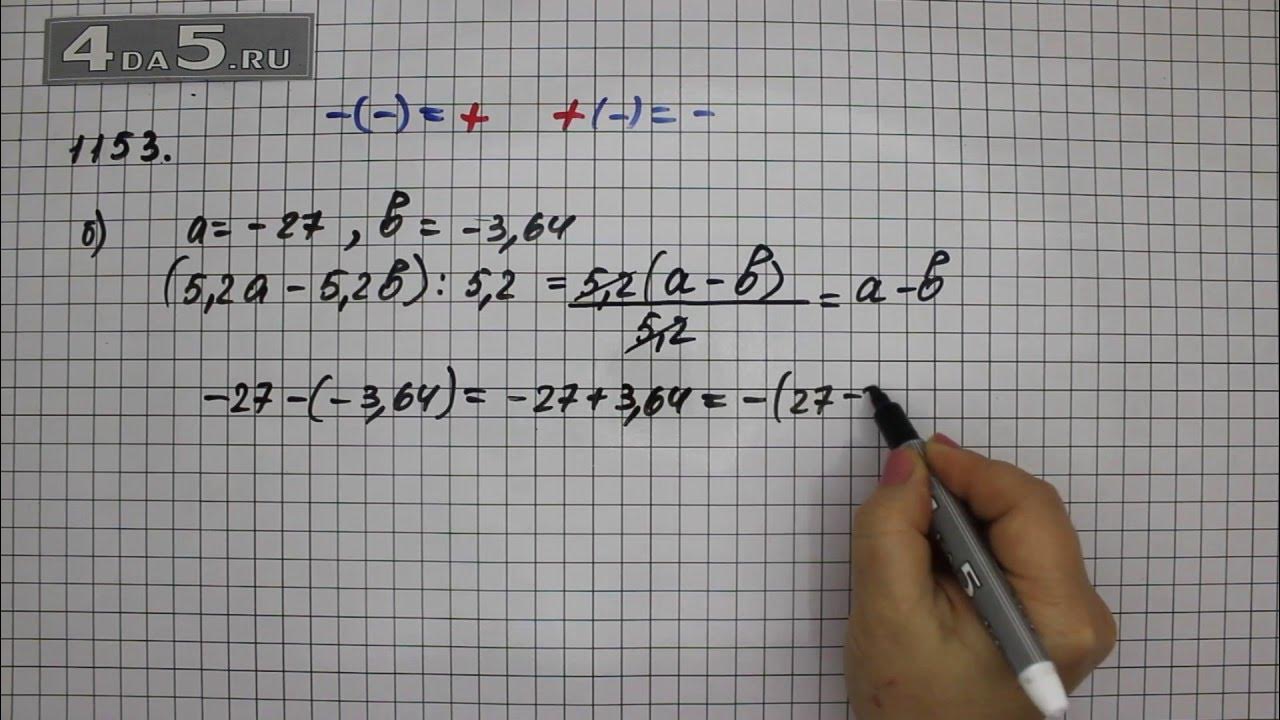 4DA5.RU
-(-) = +    +(-) = -
1153.
б) a = -27, b = -3,64
(5,2a - 5,2b) : 5,2 = 5,2(a - b)/5,2 = a - b
-27 - (-3,64) = -27 + 3,64 = -(27 -
5